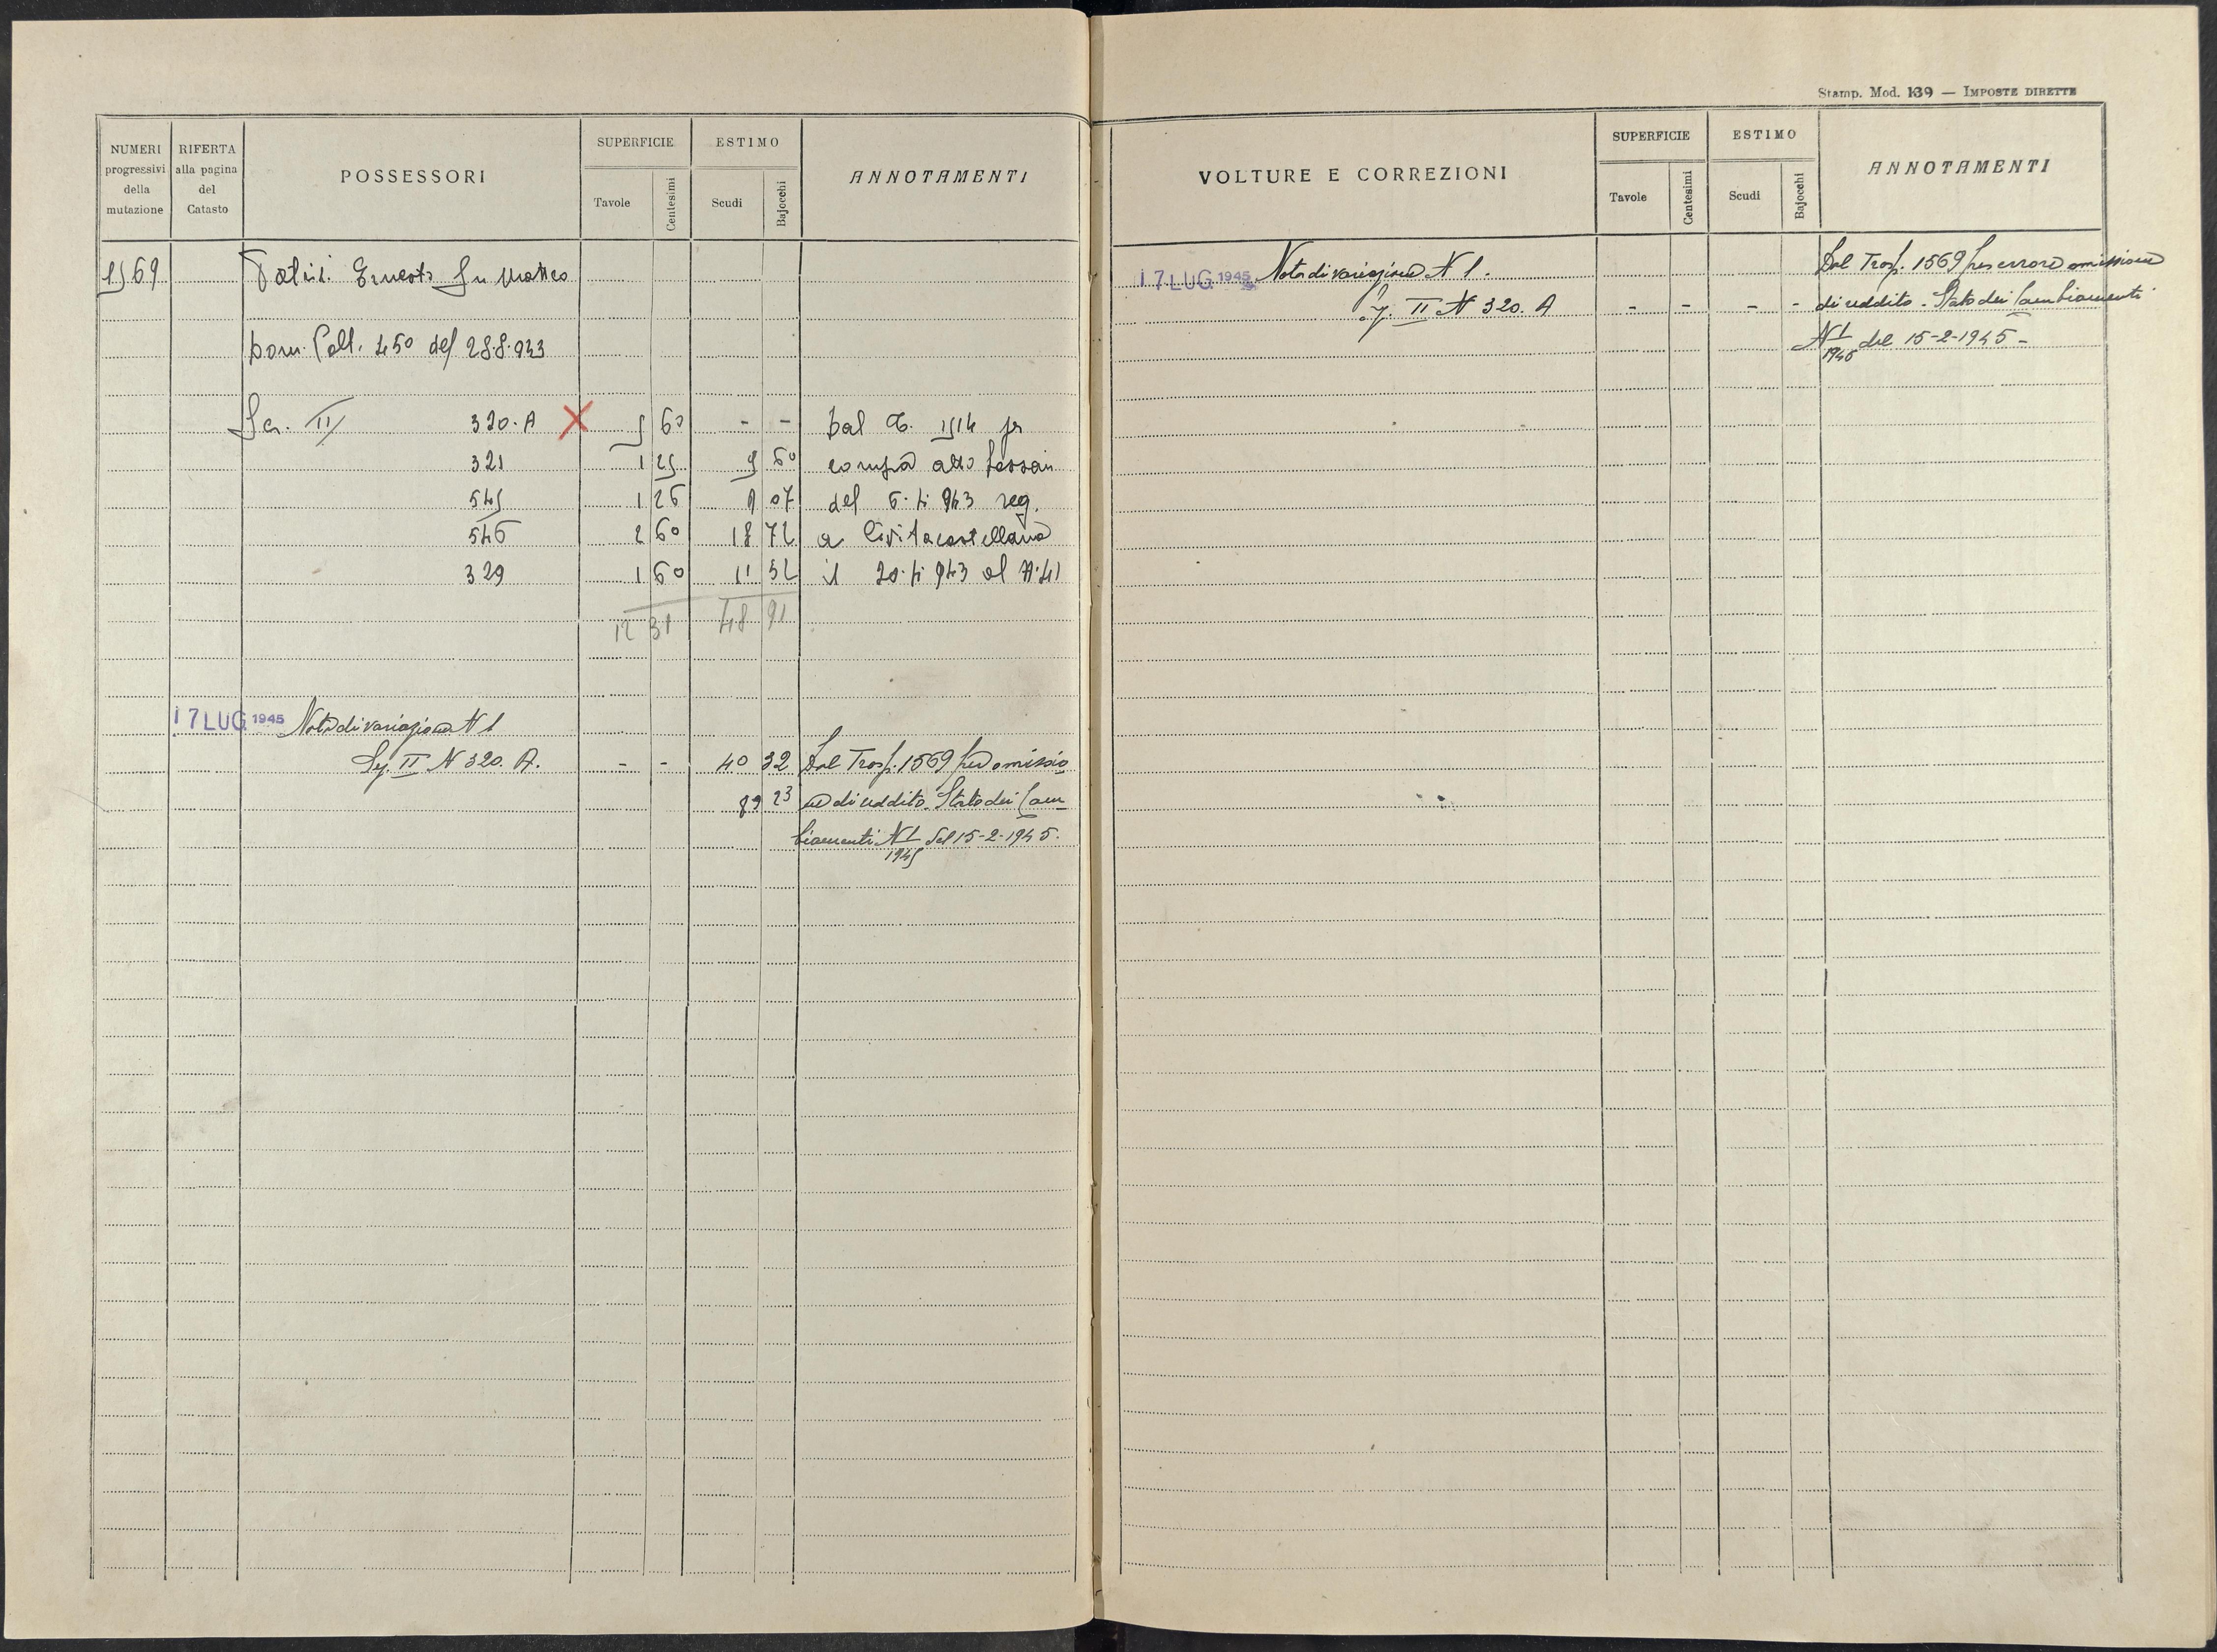 Stamp. Mod. 139 — IMPOSTE DIRETTE
NUMERI progressivi della mutazione
RIFERTA alla pagina del Catasto
POSSESSORI
SUPERFICIE
Tavole
Centesimi
ESTIMO
Scudi
Bajocchi
ANNOTAMENTI
1569 Ernesto fu Matteo
Dom. Coll. 450 del 28.8.943
Sez. II 320.A X 5 60 - - Dal T. 1514 per
321 1 25 9 60 compra atto
545 1 26 9 07 del 6.4.943 reg.
546 2 60 18 72 a Civitacastellana
329 1 60 11 52 il 20.4.943 al N. 41
12 31 48 91
17 LUG 1945 Nota di variazione N 1
Sez. II N 320. A. - - 40 32 Dal Trasp. 1569 per omissio
89 23 ne di reddito. Stato dei Cam
biamenti N 1/1945 del 15-2-1945.
VOLTURE E CORREZIONI
SUPERFICIE
Tavole
Centesimi
ESTIMO
Scudi
Bajocchi
ANNOTAMENTI
17 LUG 1945 Nota di variazione N 1. Dal Trasp. 1569 per errore omissione
Sez. II N 320. A - - - - di reddito - Stato dei Cambiamenti
N 1/1945 del 15-2-1945 -